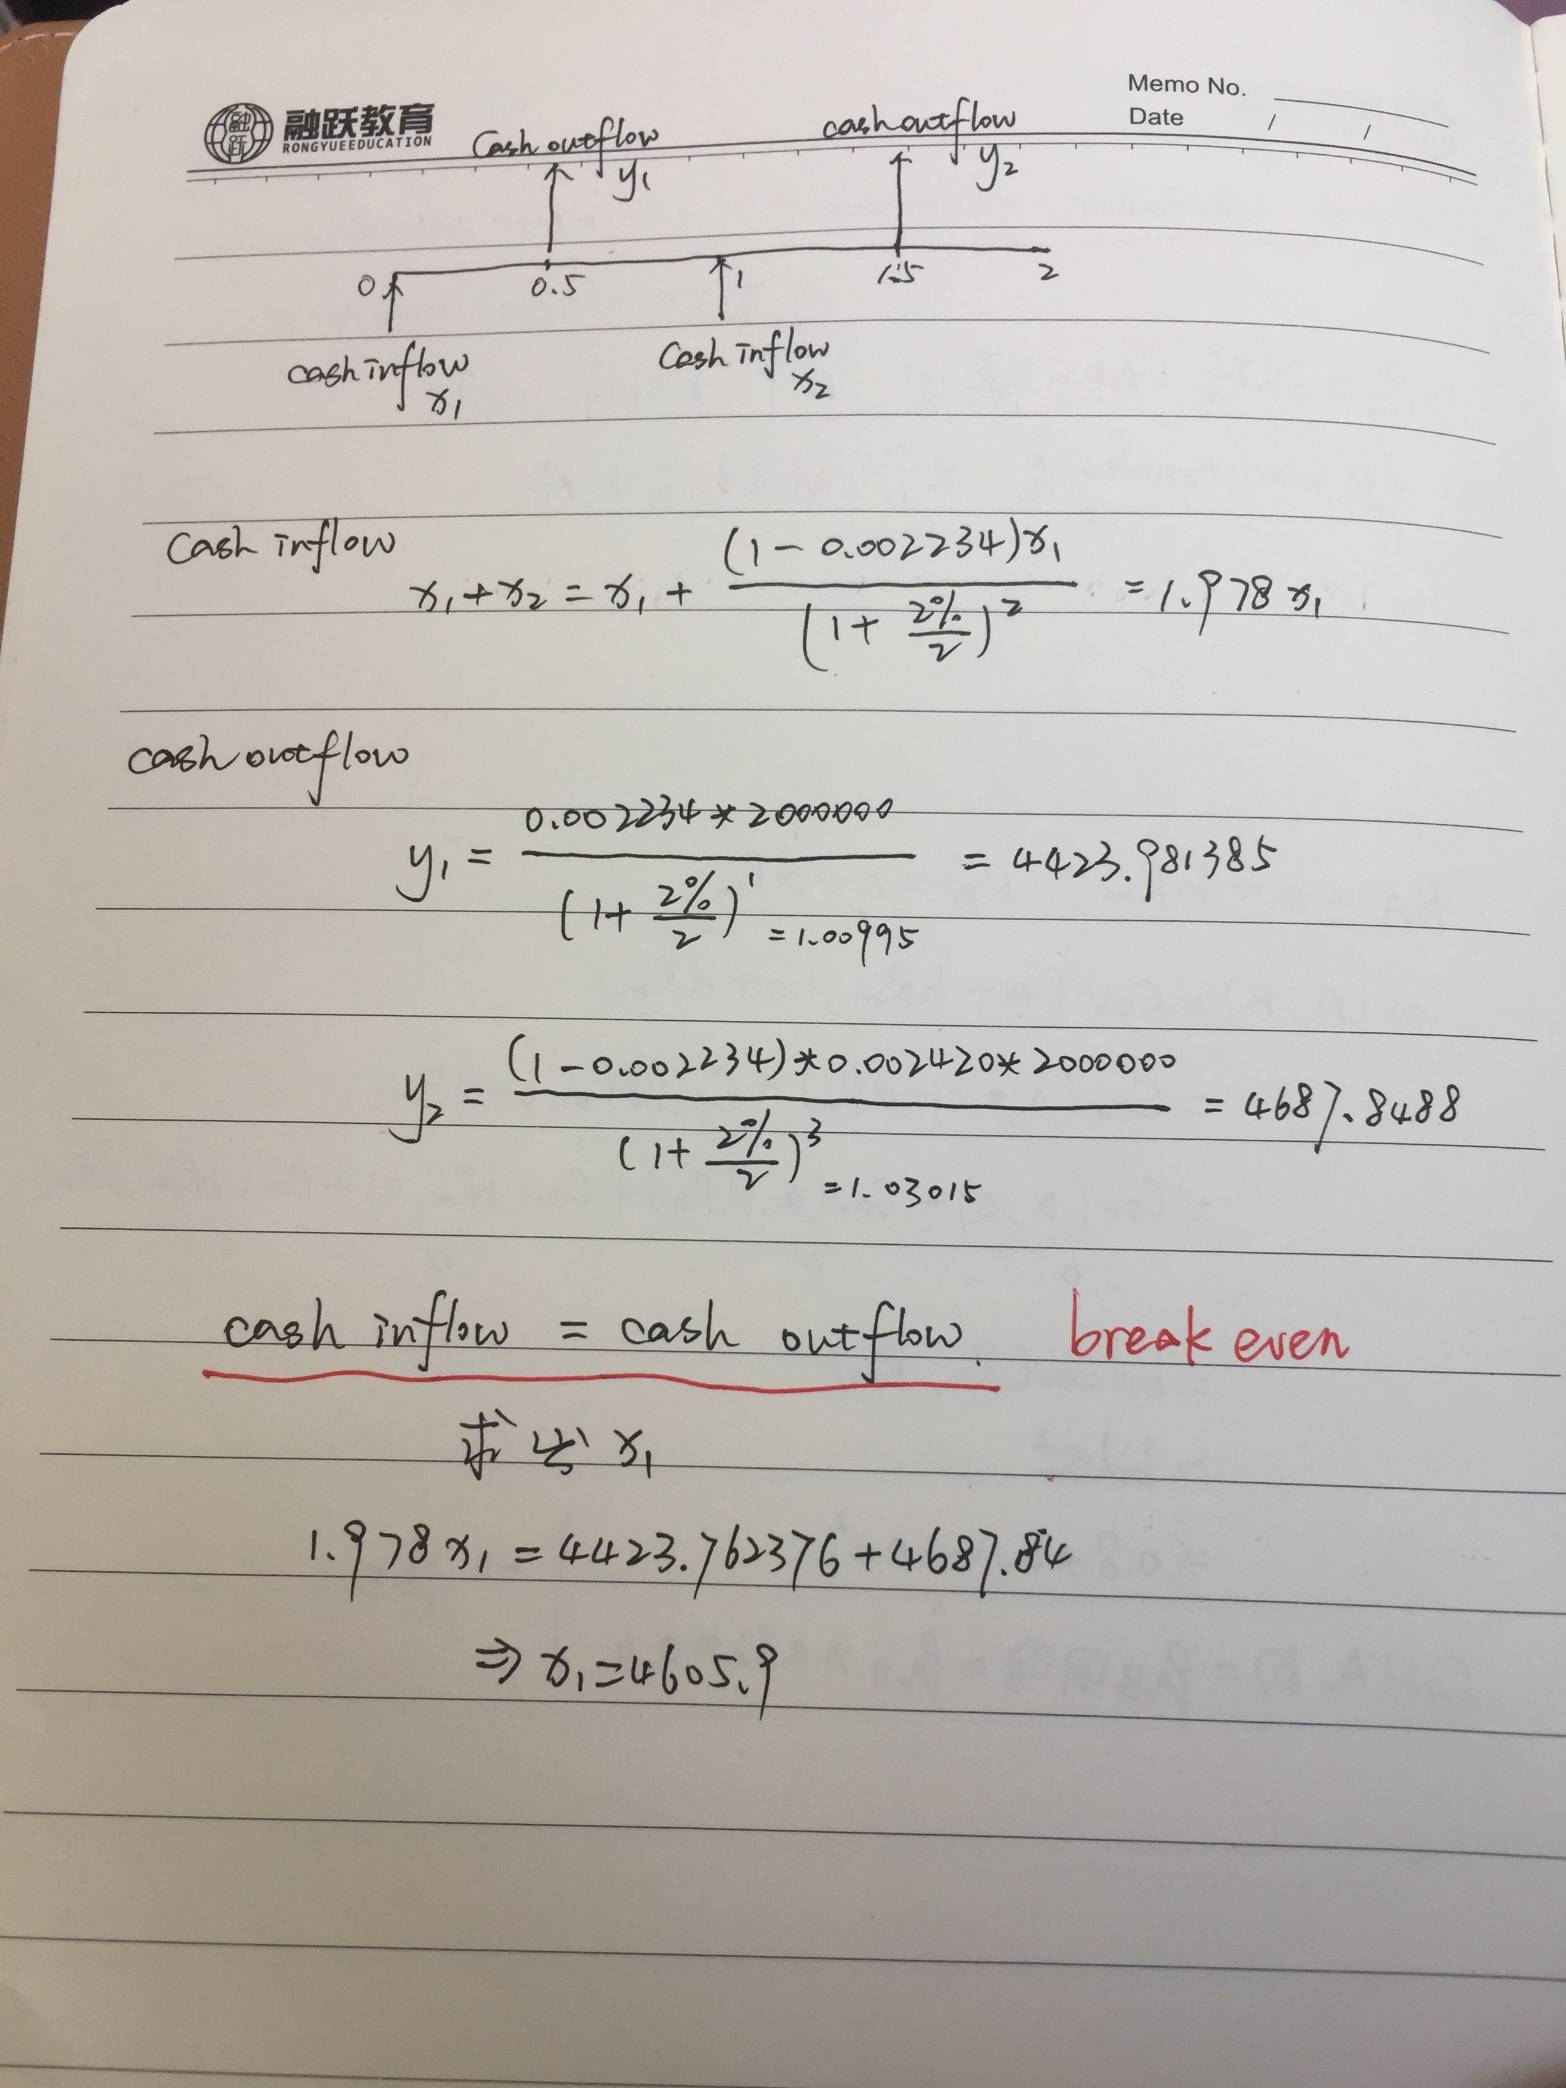 Memo No.
Date / /
融跃教育
RONGYUEEDUCATION
Cash outflow y₁
cash outflow y₂
0 0.5 1 1.5 2
cash inflow x₁
Cash inflow x₂
Cash inflow
x₁+x₂ = x₁ + (1-0.002234)x₁ / (1+2%/2)² = 1.978x₁
cash outflow
y₁ = 0.002234*2000000 / (1+2%/2)¹ = 4423.981385
=1.00995
y₂ = (1-0.002234)*0.002420*2000000 / (1+2%/2)³ = 4687.8488
=1.03015
cash inflow = cash outflow. break even
求出 x₁
1.978x₁ = 4423.762376+4687.84
⇒ x₁=4605.9